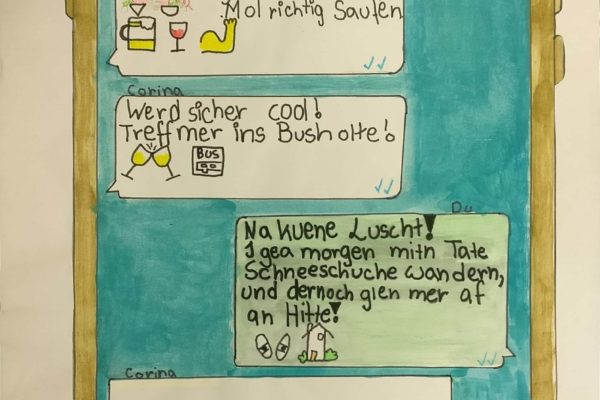 Mol richtig Saufen
Corina
Werd sicher cool!
Treff mer ins Bushotte!
BUS
go
Du
Na kuene Luscht!
I gea morgen mitn Tate
Schneeschuche wandern,
und dernoch gien mer af
an Hitte!
Corina